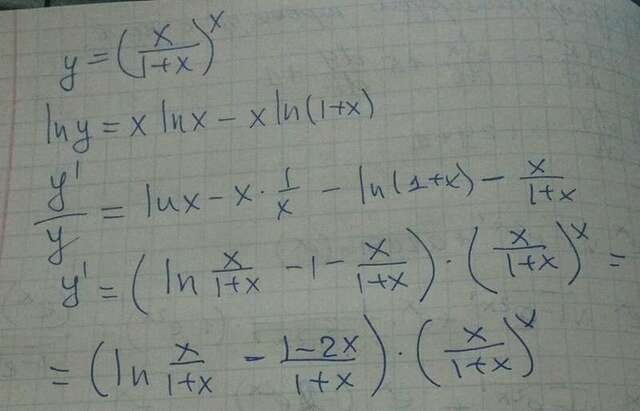 y = (x/(1+x))^x
ln y = x ln x − x ln(1+x)
y'/y = ln x − x · 1/x − ln(1+x) − x/(1+x)
y' = (ln x/(1+x) − 1 − x/(1+x)) · (x/(1+x))^x =
= (ln x/(1+x) − (1−2x)/(1+x)) · (x/(1+x))^x